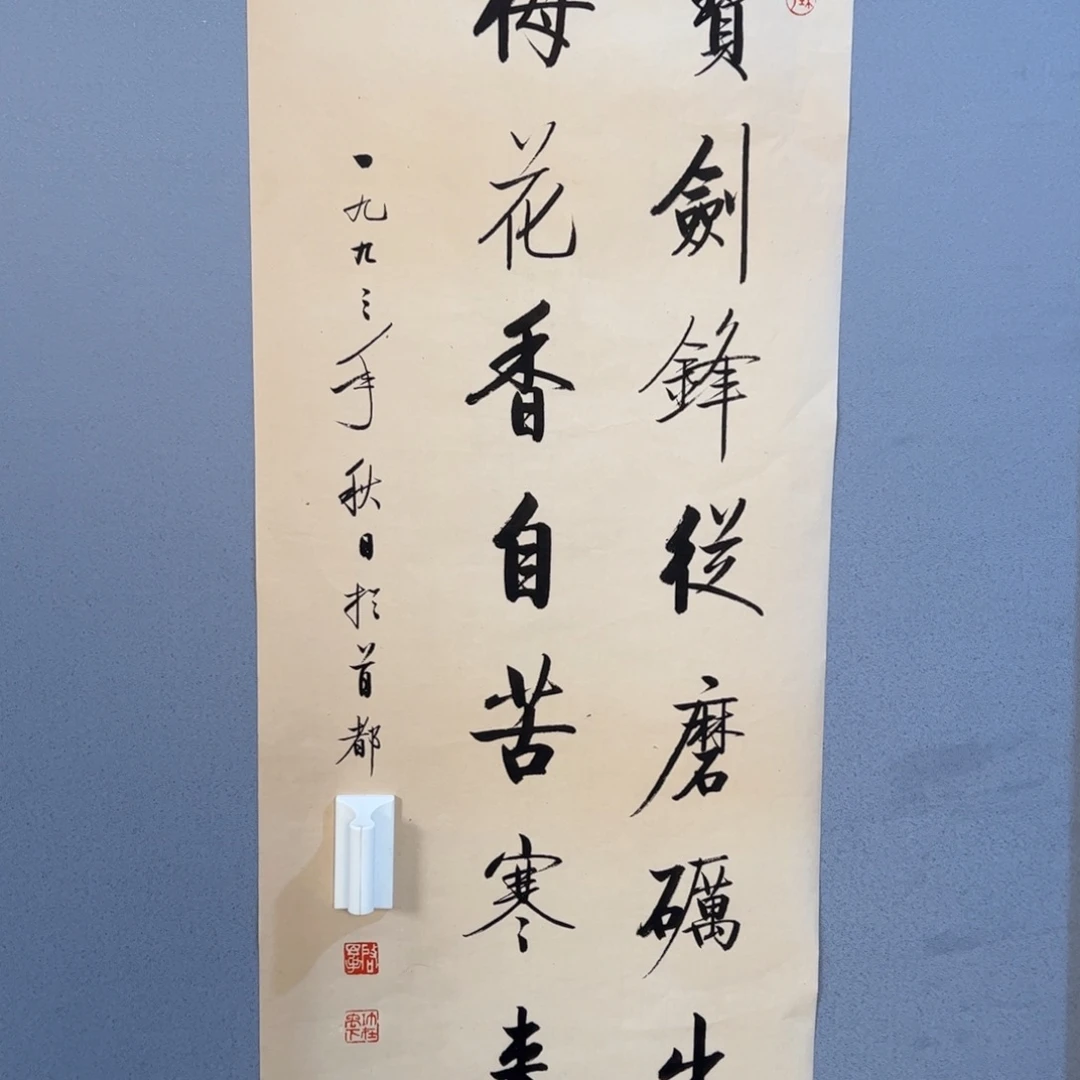 寶劍鋒從磨礪出
梅花香自苦寒來
一九九三年秋日於首都